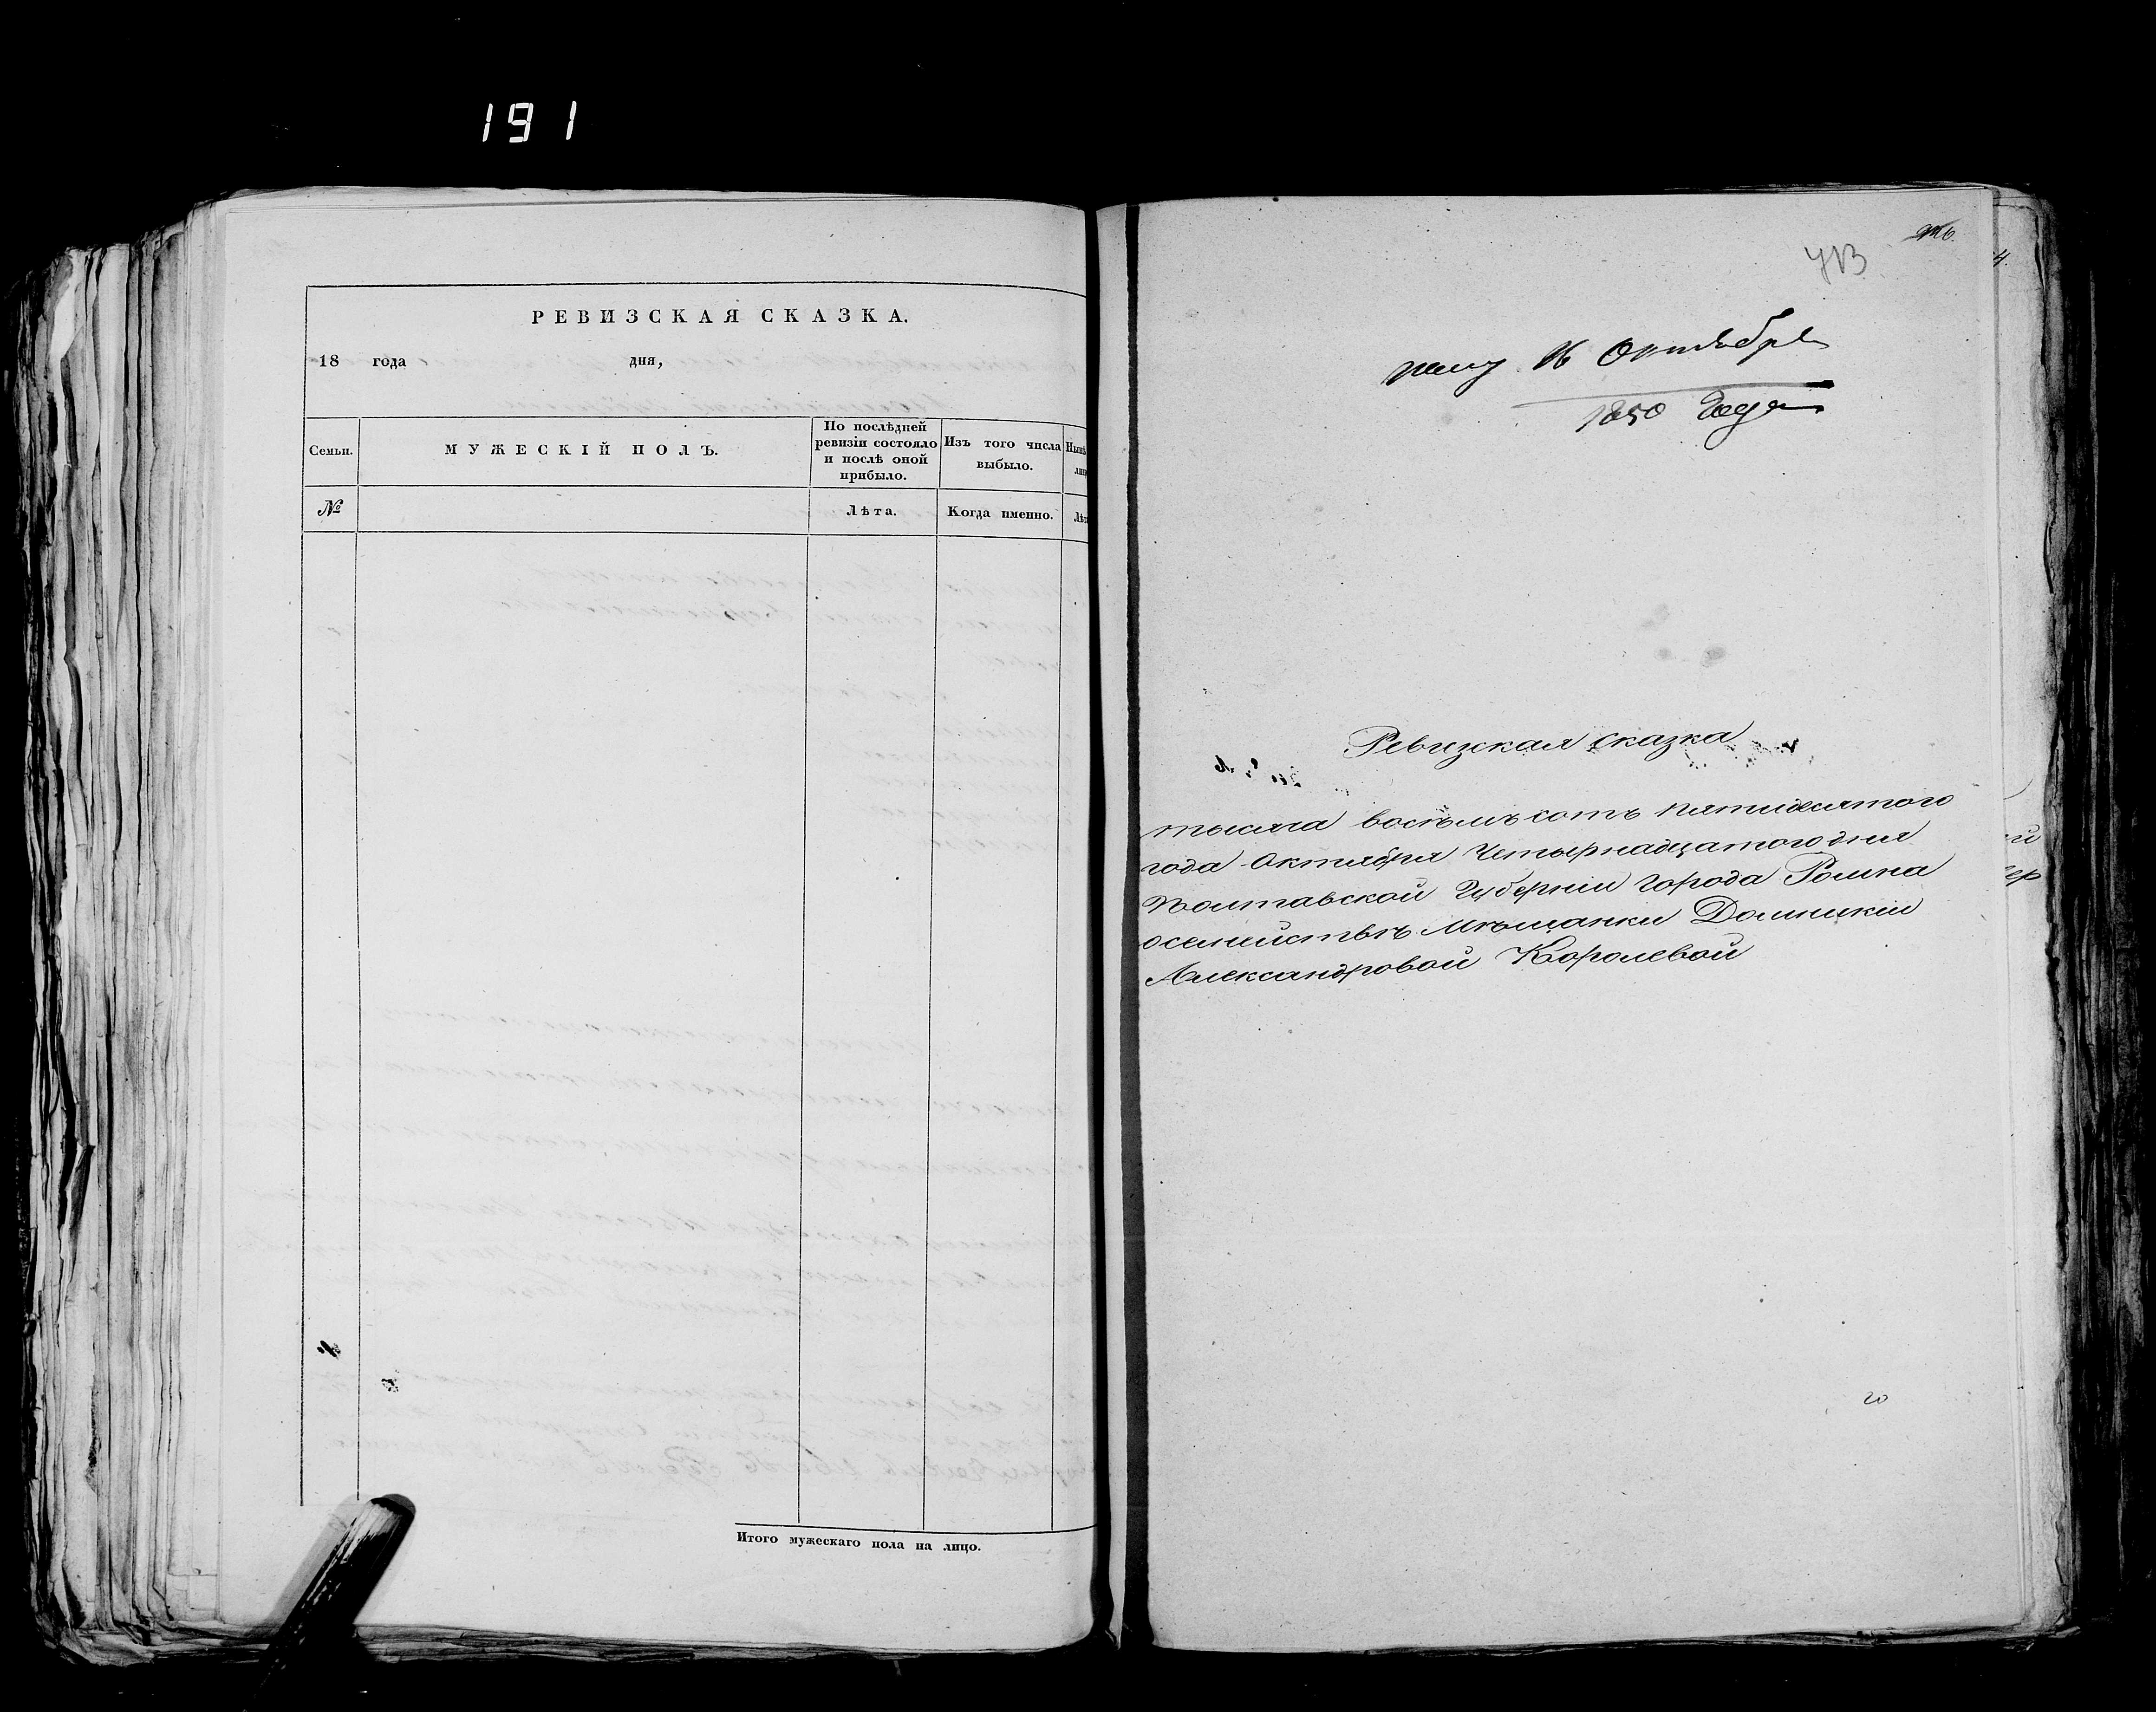 191
РЕВИЗСКАЯ СКАЗКА.
18 года дня,
Семьи.
МУЖЕСКІЙ ПОЛЪ.
По послѣдней
ревизіи состояло
и послѣ оной
прибыло.
Изъ того числа
выбыло.
№
Лѣта.
Когда именно.
Итого мужескаго пола на лицо.
16 Октября
1850 Года
Ревизская сказка
тысяча восемьсотъ пятидесятого
года Октября Четырнадцатого дня
Полтавской Губерніи города Ромна
осемействѣ мѣщанки Домникіи
Александровой Королевой
20